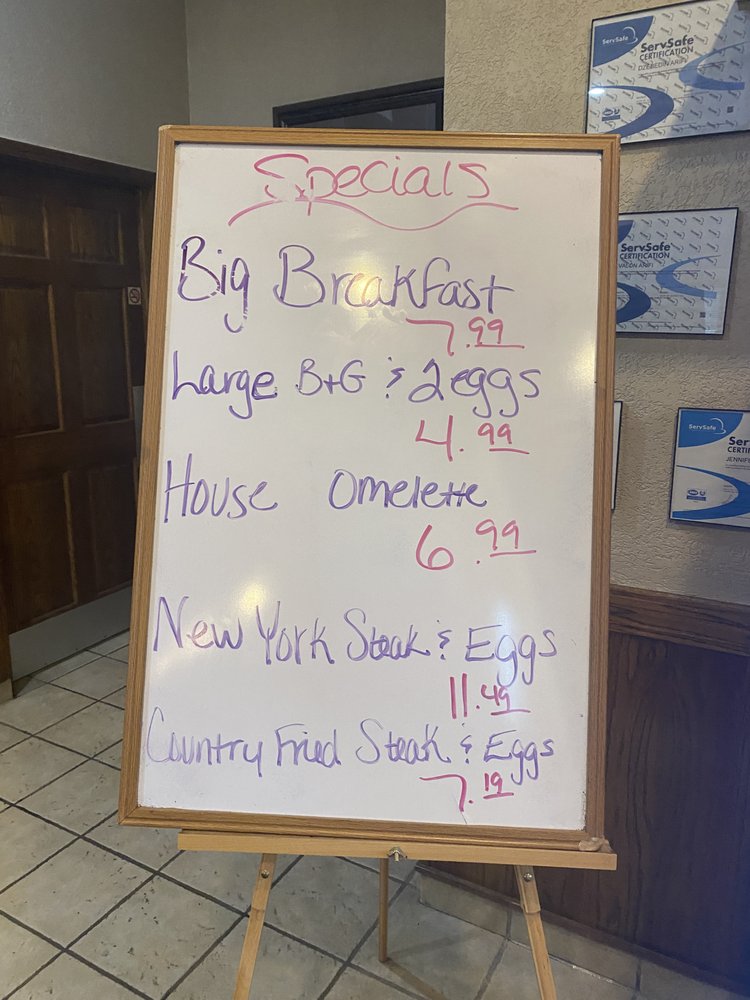 Specials
Big Breakfast
7.99
Large B+G & 2 eggs
4.99
House Omelette
6.99
New York Steak & Eggs
11.49
Country Fried Steak & Eggs
7.19
ServSafe
ServSafe
CERTIFICATION
DZEBEDIN ARIFI
ServSafe
CERTIFICATION
VALON ARIFI
ServSafe
Ser
CERTI
JENNIF